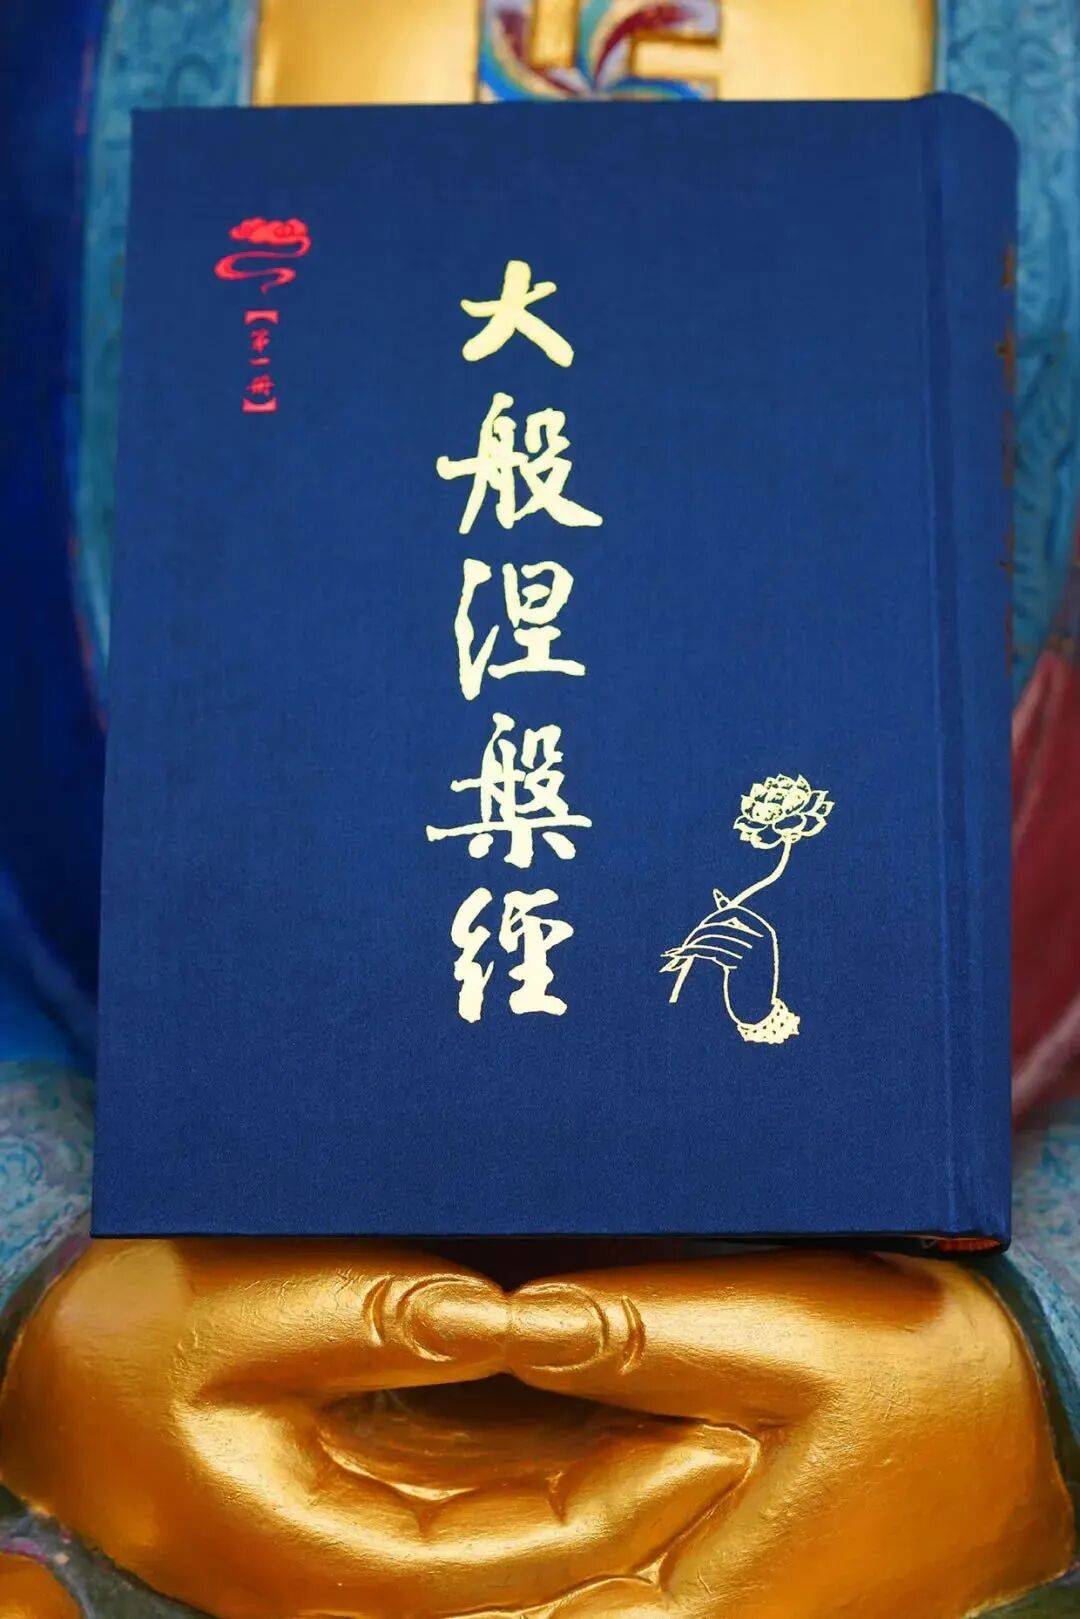 大般涅槃經
【第一册】